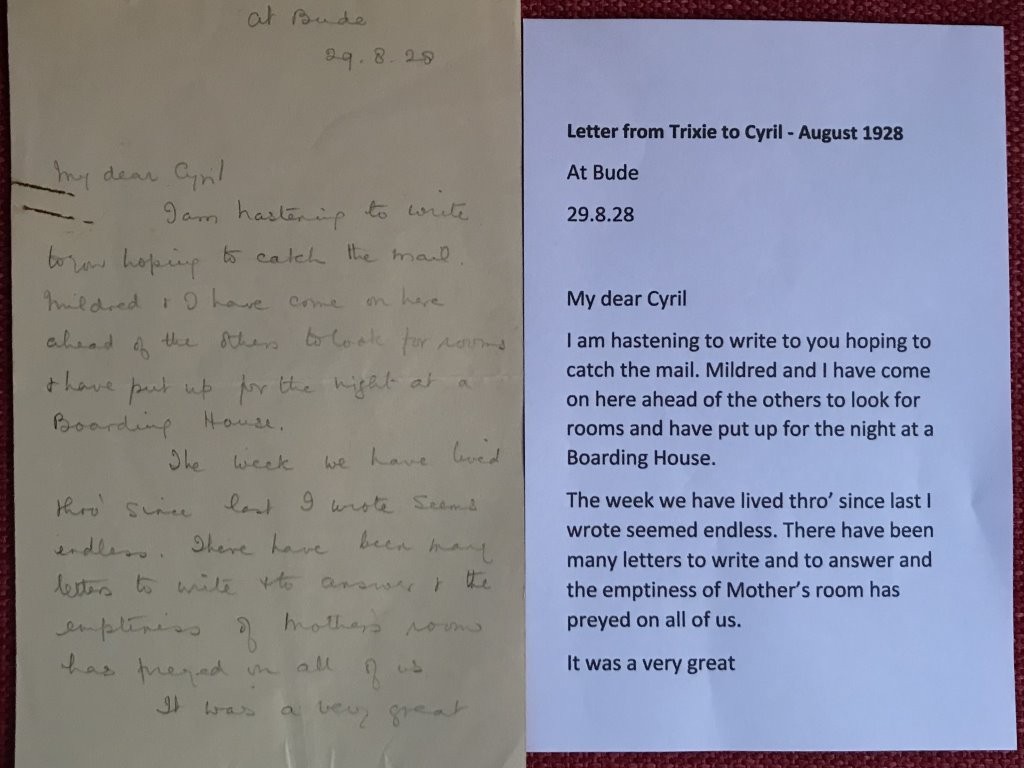 at Bude
29.8.28
My dear Cyril
I am hastening to write
to you hoping to catch the mail.
Mildred & I have come on here
ahead of the others to look for rooms
& have put up for the night at a
Boarding House.
The week we have lived
thro' since last I wrote seems
endless. There have been many
letters to write & to answer & the
emptiness of Mother's room
has preyed on all of us
It was a very great
Letter from Trixie to Cyril - August 1928
At Bude
29.8.28
My dear Cyril
I am hastening to write to you hoping to
catch the mail. Mildred and I have come
on here ahead of the others to look for
rooms and have put up for the night at a
Boarding House.
The week we have lived thro’ since last I
wrote seemed endless. There have been
many letters to write and to answer and
the emptiness of Mother’s room has
preyed on all of us.
It was a very great